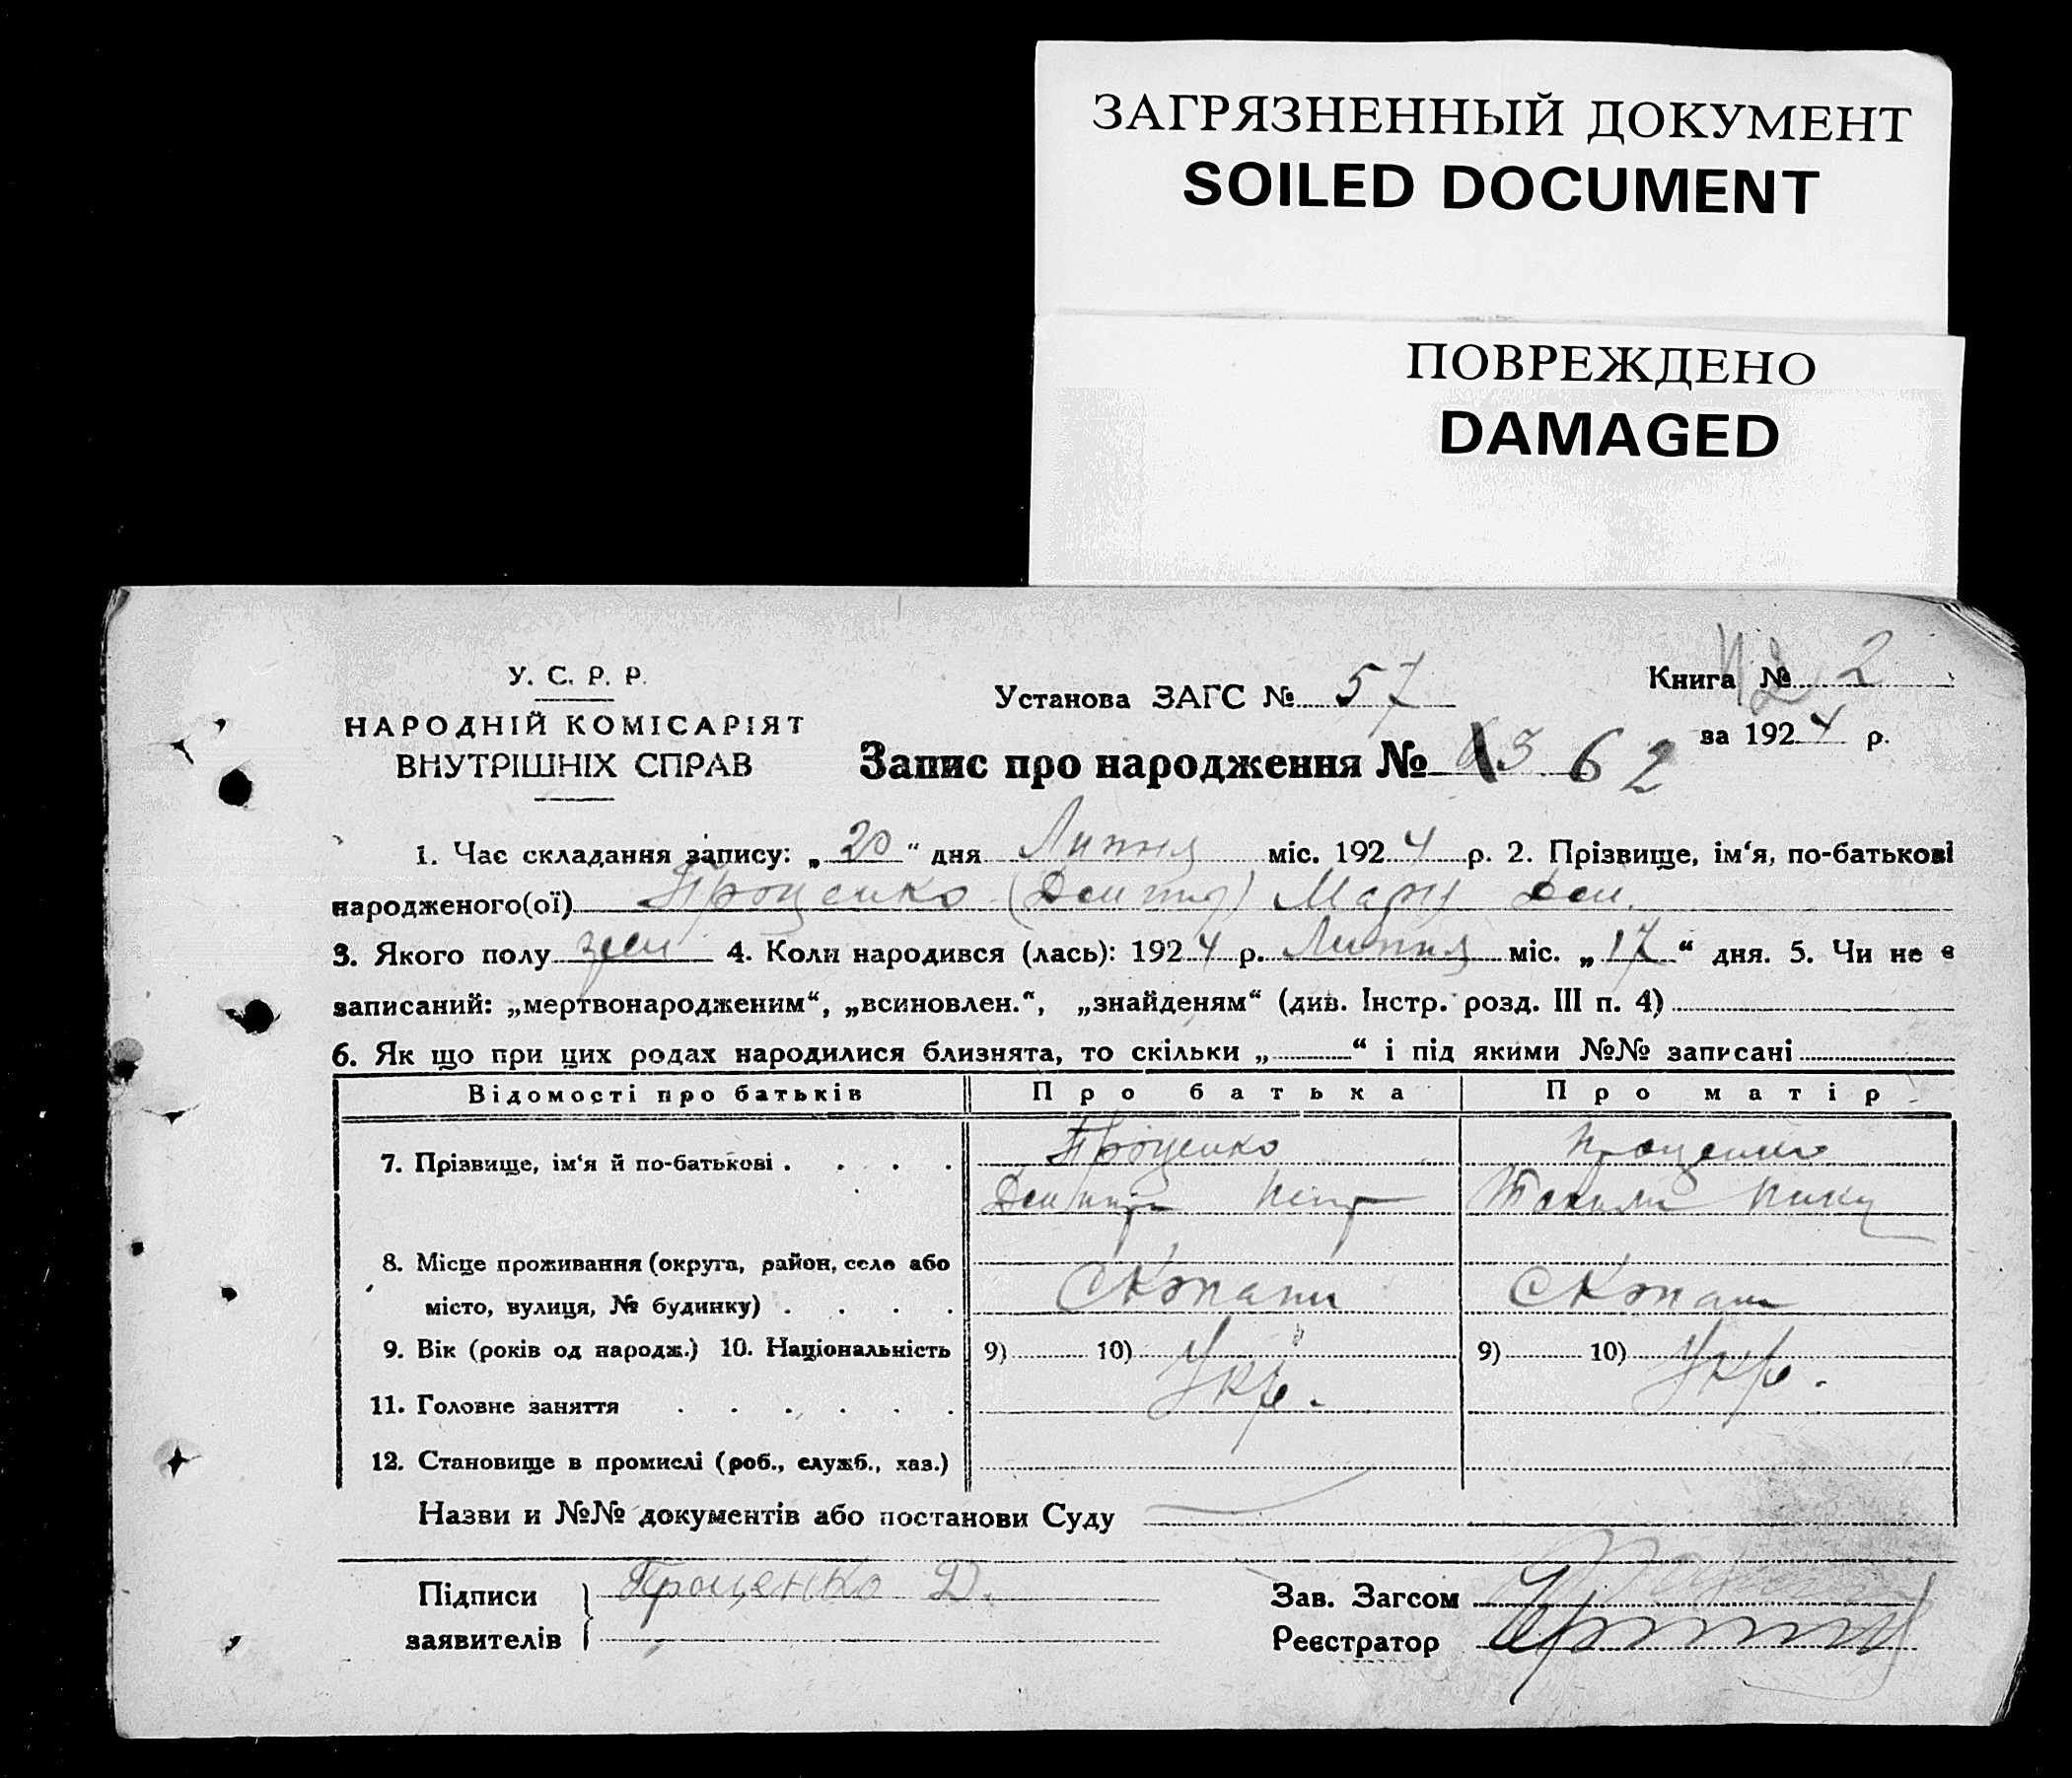 ЗАГРЯЗНЕННЫЙ ДОКУМЕНТ
SOILED DOCUMENT
ПОВРЕЖДЕНО
DAMAGED
У. С. Р. Р.
НАРОДНІЙ КОМІСАРІЯТ
ВНУТРІШНІХ СПРАВ
Установа ЗАГС № 57
Книга № 2
за 1924 р.
Запис про народження № 62
1. Час складання запису: „20“ дня Липня міс. 1924 р. 2. Прізвище, ім‘я, по-батькові
народженого(ої) Проценко
3. Якого полу жен 4. Коли народився (лась): 1924 р. Липня міс. „17“ дня. 5. Чи не є
записаний: „мертвонародженим“, „всиновлен.“, „знайденям“ (див. Інстр. розд. III п. 4)
6. Як що при цих родах народилися близнята, то скільки „ “ і під якими №№ записані
Відомості про батьків Про батька Про матір
7. Прізвище, ім‘я й по-батькові Проценко Проценко
8. Місце проживання (округа, район, село або
місто, вулиця, № будинку)
9. Вік (років од народж.) 10. Національність 9) 10) Укр. 9) 10) Укр.
11. Головне заняття
12. Становище в промислі (роб., служб., хаз.)
Назви и №№ документів або постанови Суду
Підписи Проценко Д.
заявителів
Зав. Загсом
Реєстратор